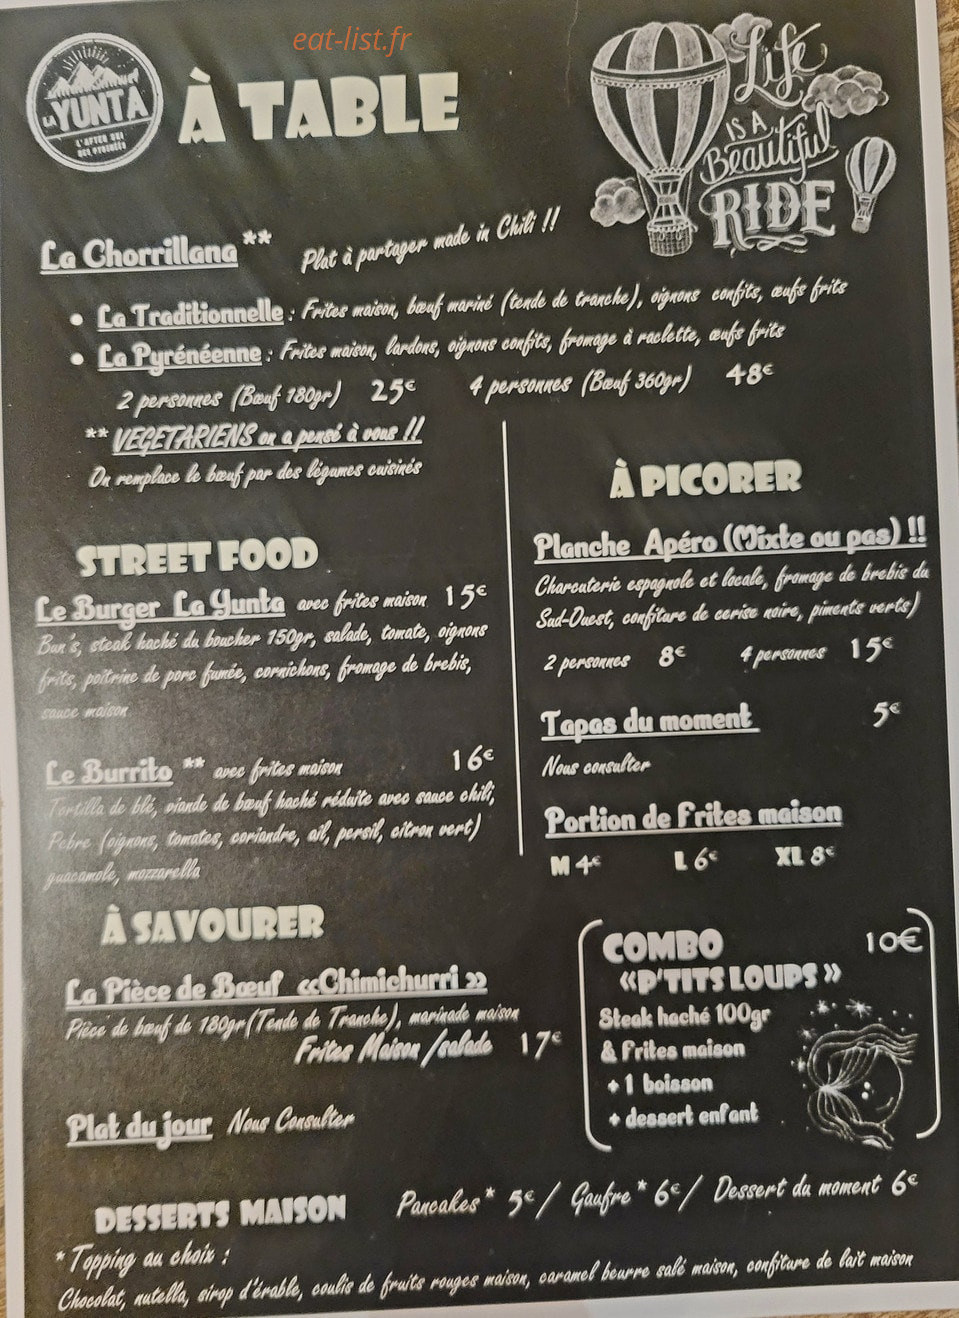 eat-list.fr
LA YUNTA
À TABLE
Life
IS A
Beautiful
RIDE
La Chorrillana** Plat à partager made in Chili !!
• La Traditionnelle : Frites maison, bœuf mariné (tende de tranche), oignons confits, œufs frits
• La Pyrénéenne : Frites maison, lardons, oignons confits, fromage à raclette, œufs frits
2 personnes (Bœuf 180gr) 25€ 4 personnes (Bœuf 360gr) 48€
** VEGETARIENS on a pensé à vous !!
On remplace le bœuf par des légumes cuisinés
STREET FOOD
Le Burger La Yunta avec frites maison 15€
Bun's, steak haché du boucher 150gr, salade, tomate, oignons
frits, poitrine de porc fumée, cornichons, fromage de brebis,
sauce maison
Le Burrito ** avec frites maison 16€
Tortilla de blé, viande de bœuf haché réduite avec sauce chili,
Pebre (oignons, tomates, coriandre, ail, persil, citron vert)
guacamole, mozzarella
À PICORER
Planche Apéro (Mixte ou pas) !!
Charcuterie espagnole et locale, fromage de brebis du
Sud-Ouest, confiture de cerise noire, piments verts)
2 personnes 8€ 4 personnes 15€
Tapas du moment 5€
Nous consulter
Portion de Frites maison
M 4€ L 6€ XL 8€
À SAVOURER
La Pièce de Bœuf «Chimichurri »
Pièce de bœuf de 180gr(Tende de Tranche), marinade maison
Frites Maison /salade 17€
Plat du jour Nous Consulter
COMBO 10€
«P'TITS LOUPS »
Steak haché 100gr
& Frites maison
+ 1 boisson
+ dessert enfant
DESSERTS MAISON Pancakes* 5€ / Gaufre* 6€ / Dessert du moment 6€
* Topping au choix :
Chocolat, nutella, sirop d'érable, coulis de fruits rouges maison, caramel beurre salé maison, confiture de lait maison